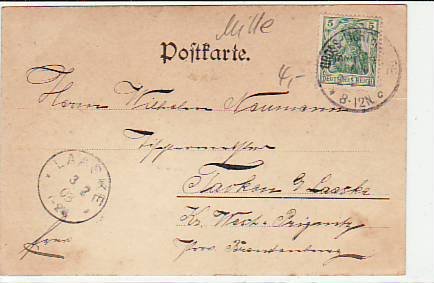 Mitte
5
Postkarte.
4,-
DEUTSCHES REICH
8-12N.
Herrn Wilhelm Naumann
LAASKE
3 2
03
Laaske
Kr. West-Prignitz
Prov. Brandenburg